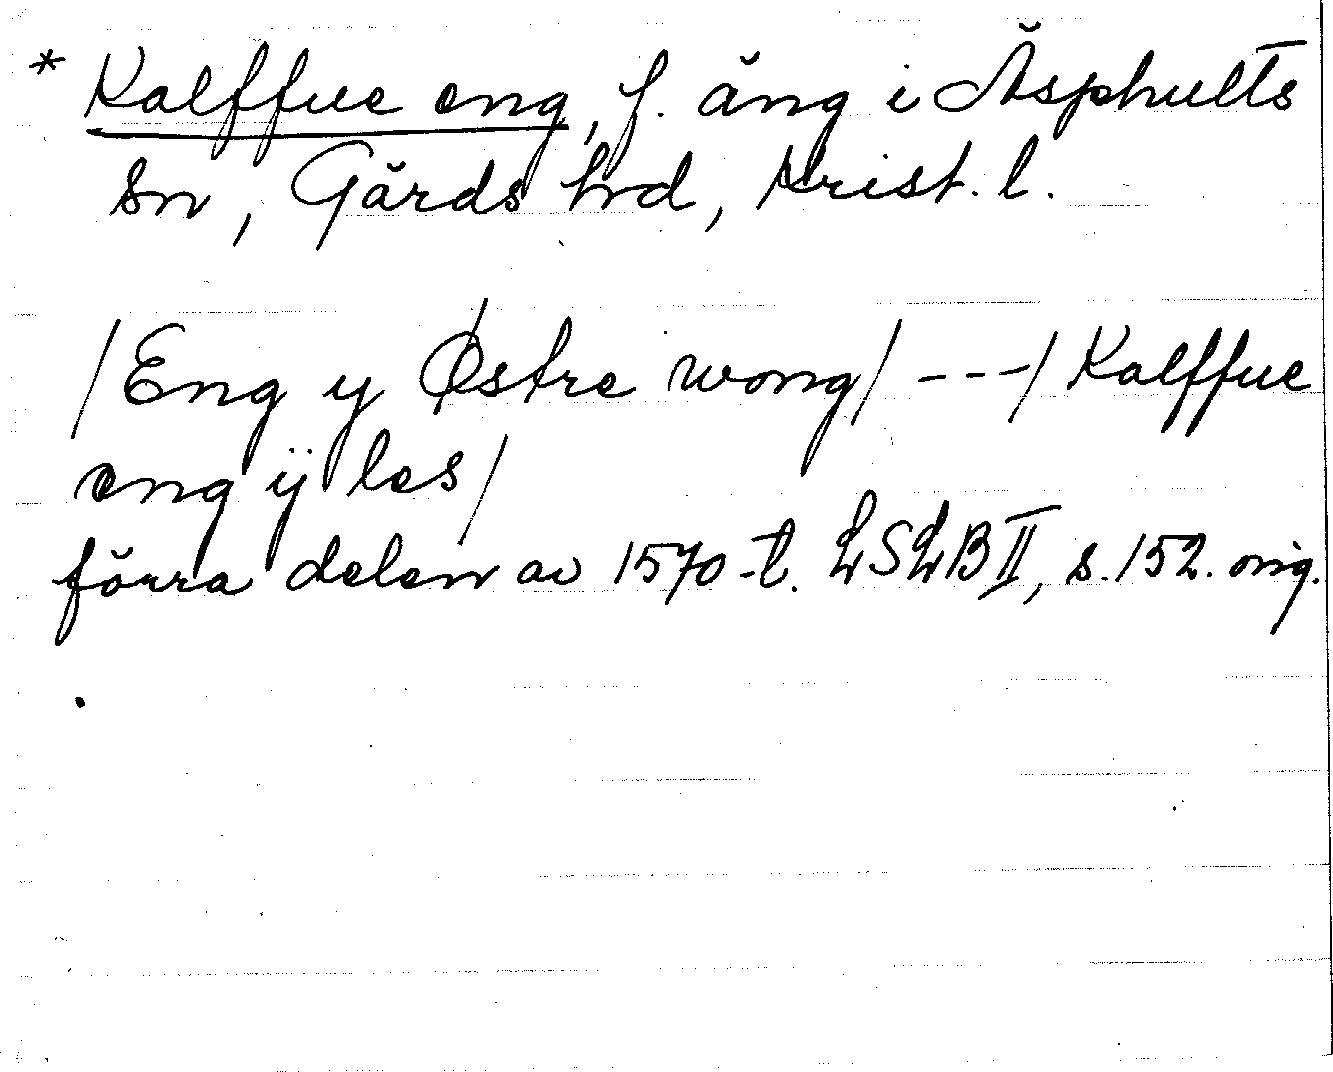 * Kalffue eng, f. äng i Äsphults
sn, Gärds hrd, Krist. l.
/Eng y Østre wong/ ---/ Kalffue
eng ÿ les/
förra delen av 1570-t. LSLB II, s. 152. orig.